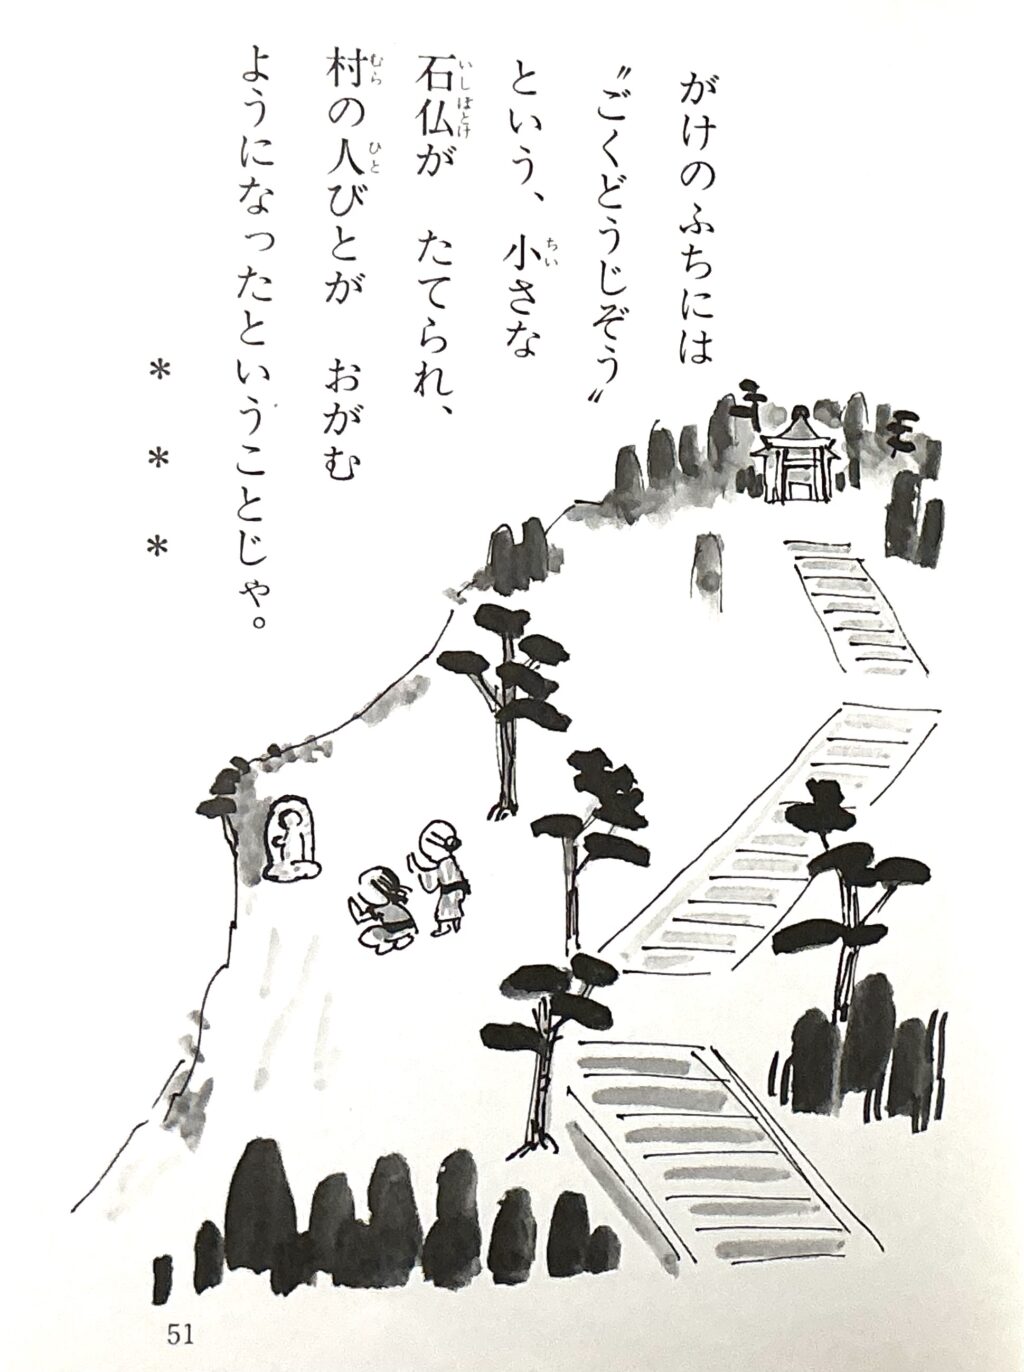 がけのふちには
〝ごくどうじぞう〟
という、小さな
石仏が　たてられ、
村の人びとが　おがむ
ようになったということじゃ。
＊　＊　＊
51